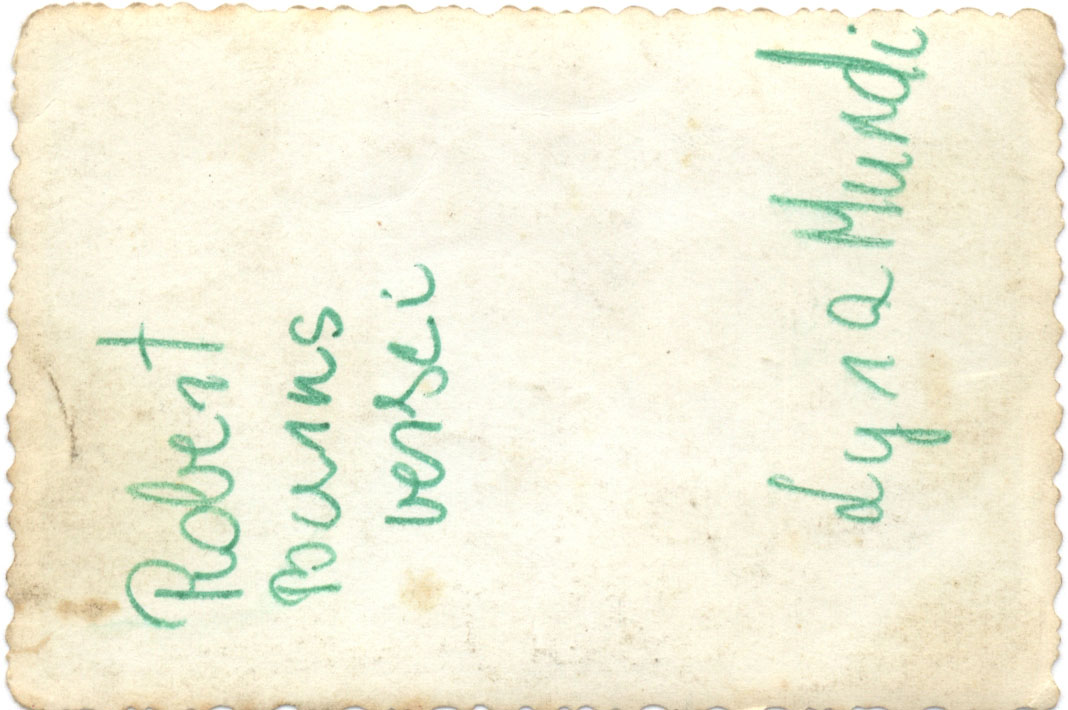 Robert
Burns
versei
Lyra Mundi